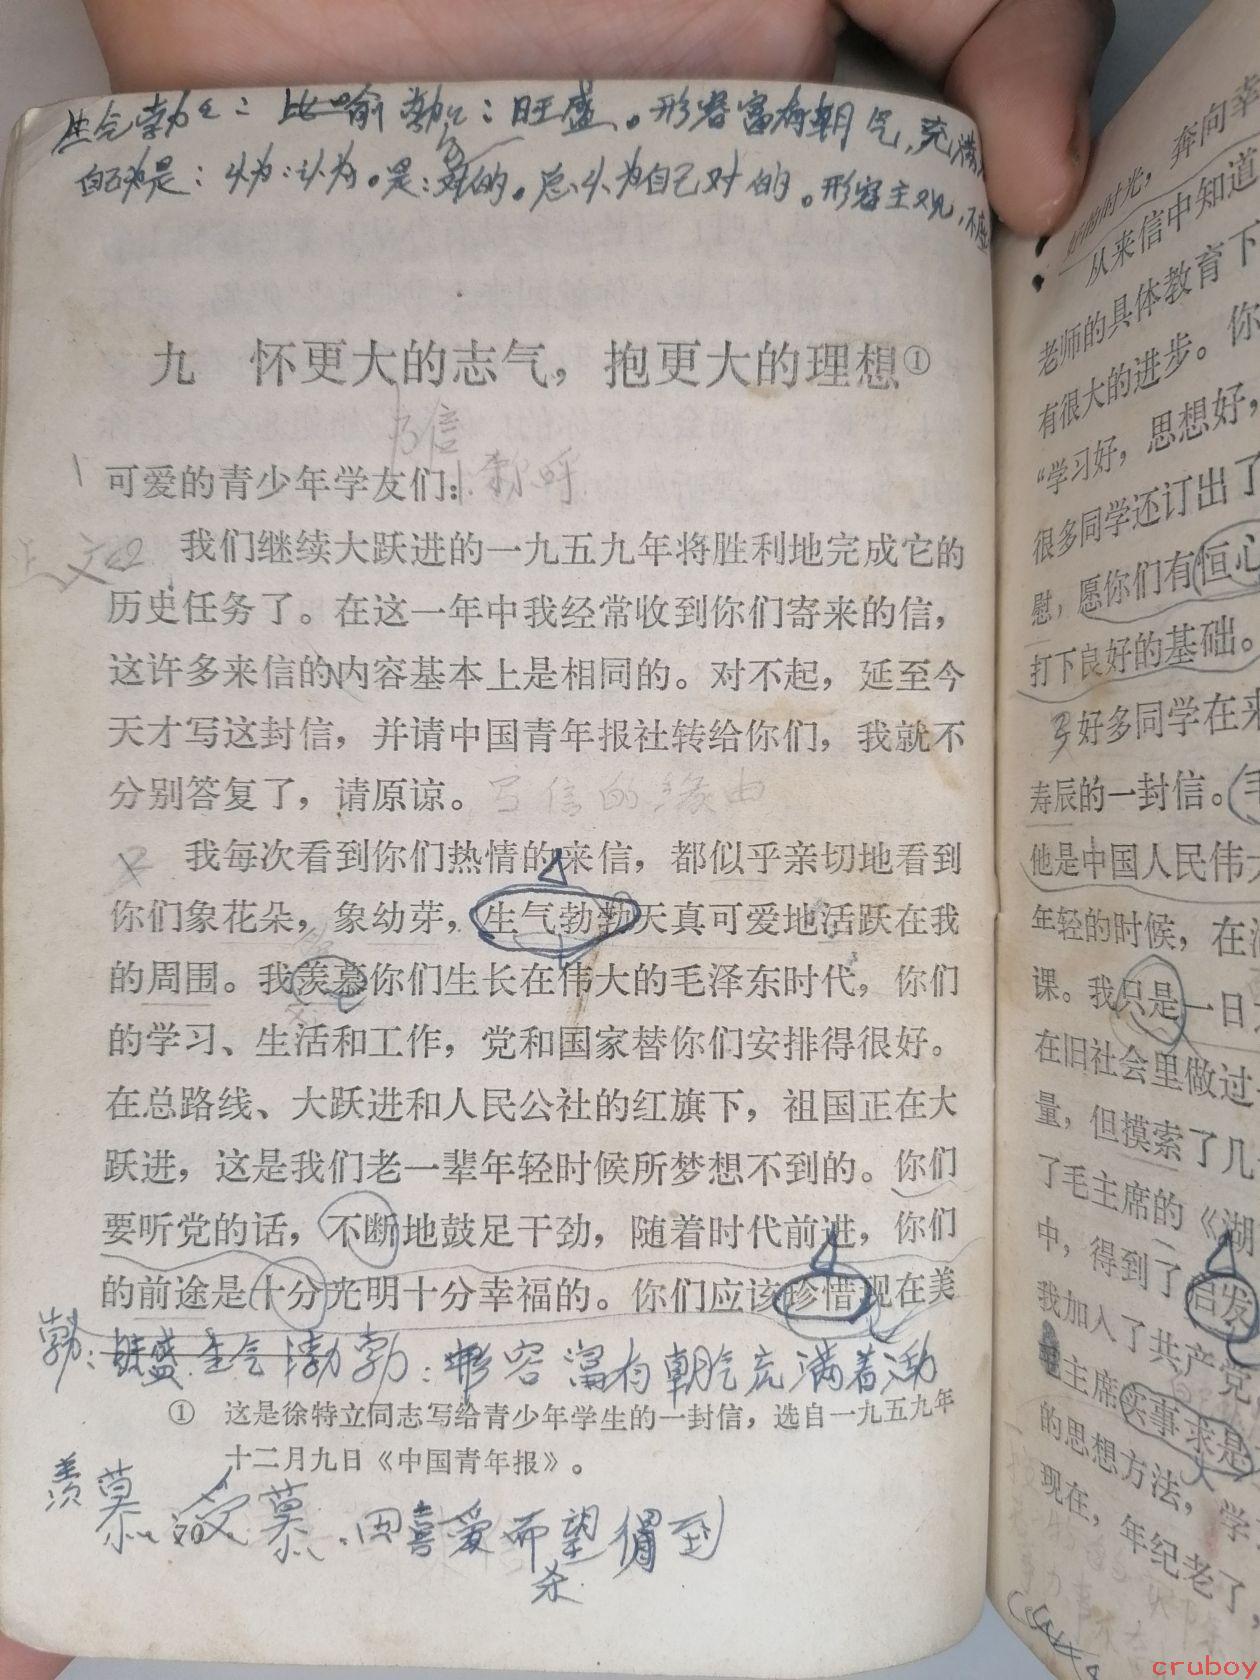 生气勃勃：比喻 勃勃：旺盛。形容富有朝气，充满
自以为是：以为：认为。是：对的。总以为自己对的。形容主观，不虚
九　怀更大的志气，抱更大的理想①
写信
可爱的青少年学友们： 称呼
正文 我们继续大跃进的一九五九年将胜利地完成它的
历史任务了。在这一年中我经常收到你们寄来的信，
这许多来信的内容基本上是相同的。对不起，延至今
天才写这封信，并请中国青年报社转给你们，我就不
分别答复了，请原谅。 写信的缘由
我每次看到你们热情的来信，都似乎亲切地看到
你们象花朵，象幼芽，生气勃勃天真可爱地活跃在我
的周围。我羡慕你们生长在伟大的毛泽东时代，你们
的学习、生活和工作，党和国家替你们安排得很好。
在总路线、大跃进和人民公社的红旗下，祖国正在大
跃进，这是我们老一辈年轻时候所梦想不到的。你们
要听党的话，不断地鼓足干劲，随着时代前进，你们
的前途是十分光明十分幸福的。你们应该珍惜现在美
勃：旺盛 生气勃勃：形容富有朝气充满着活
①　这是徐特立同志写给青少年学生的一封信，选自一九五九年
十二月九日《中国青年报》。
羡慕：爱慕，因喜爱而希望得到
70
好的时光，奔向幸
从来信中知道
老师的具体教育下
有很大的进步。你
“学习好，思想好，
很多同学还订出了
慰，愿你们有恒心
打下良好的基础。
好多同学在来
寿辰的一封信。毛
他是中国人民伟大
年轻的时候，在湖
课。我只是一日
在旧社会里做过
量，但摸索了几
了毛主席的《湖
中，得到了启发
我加入了共产党
主席实事求是
的思想方法，学
现在，年纪老了，
cruboy